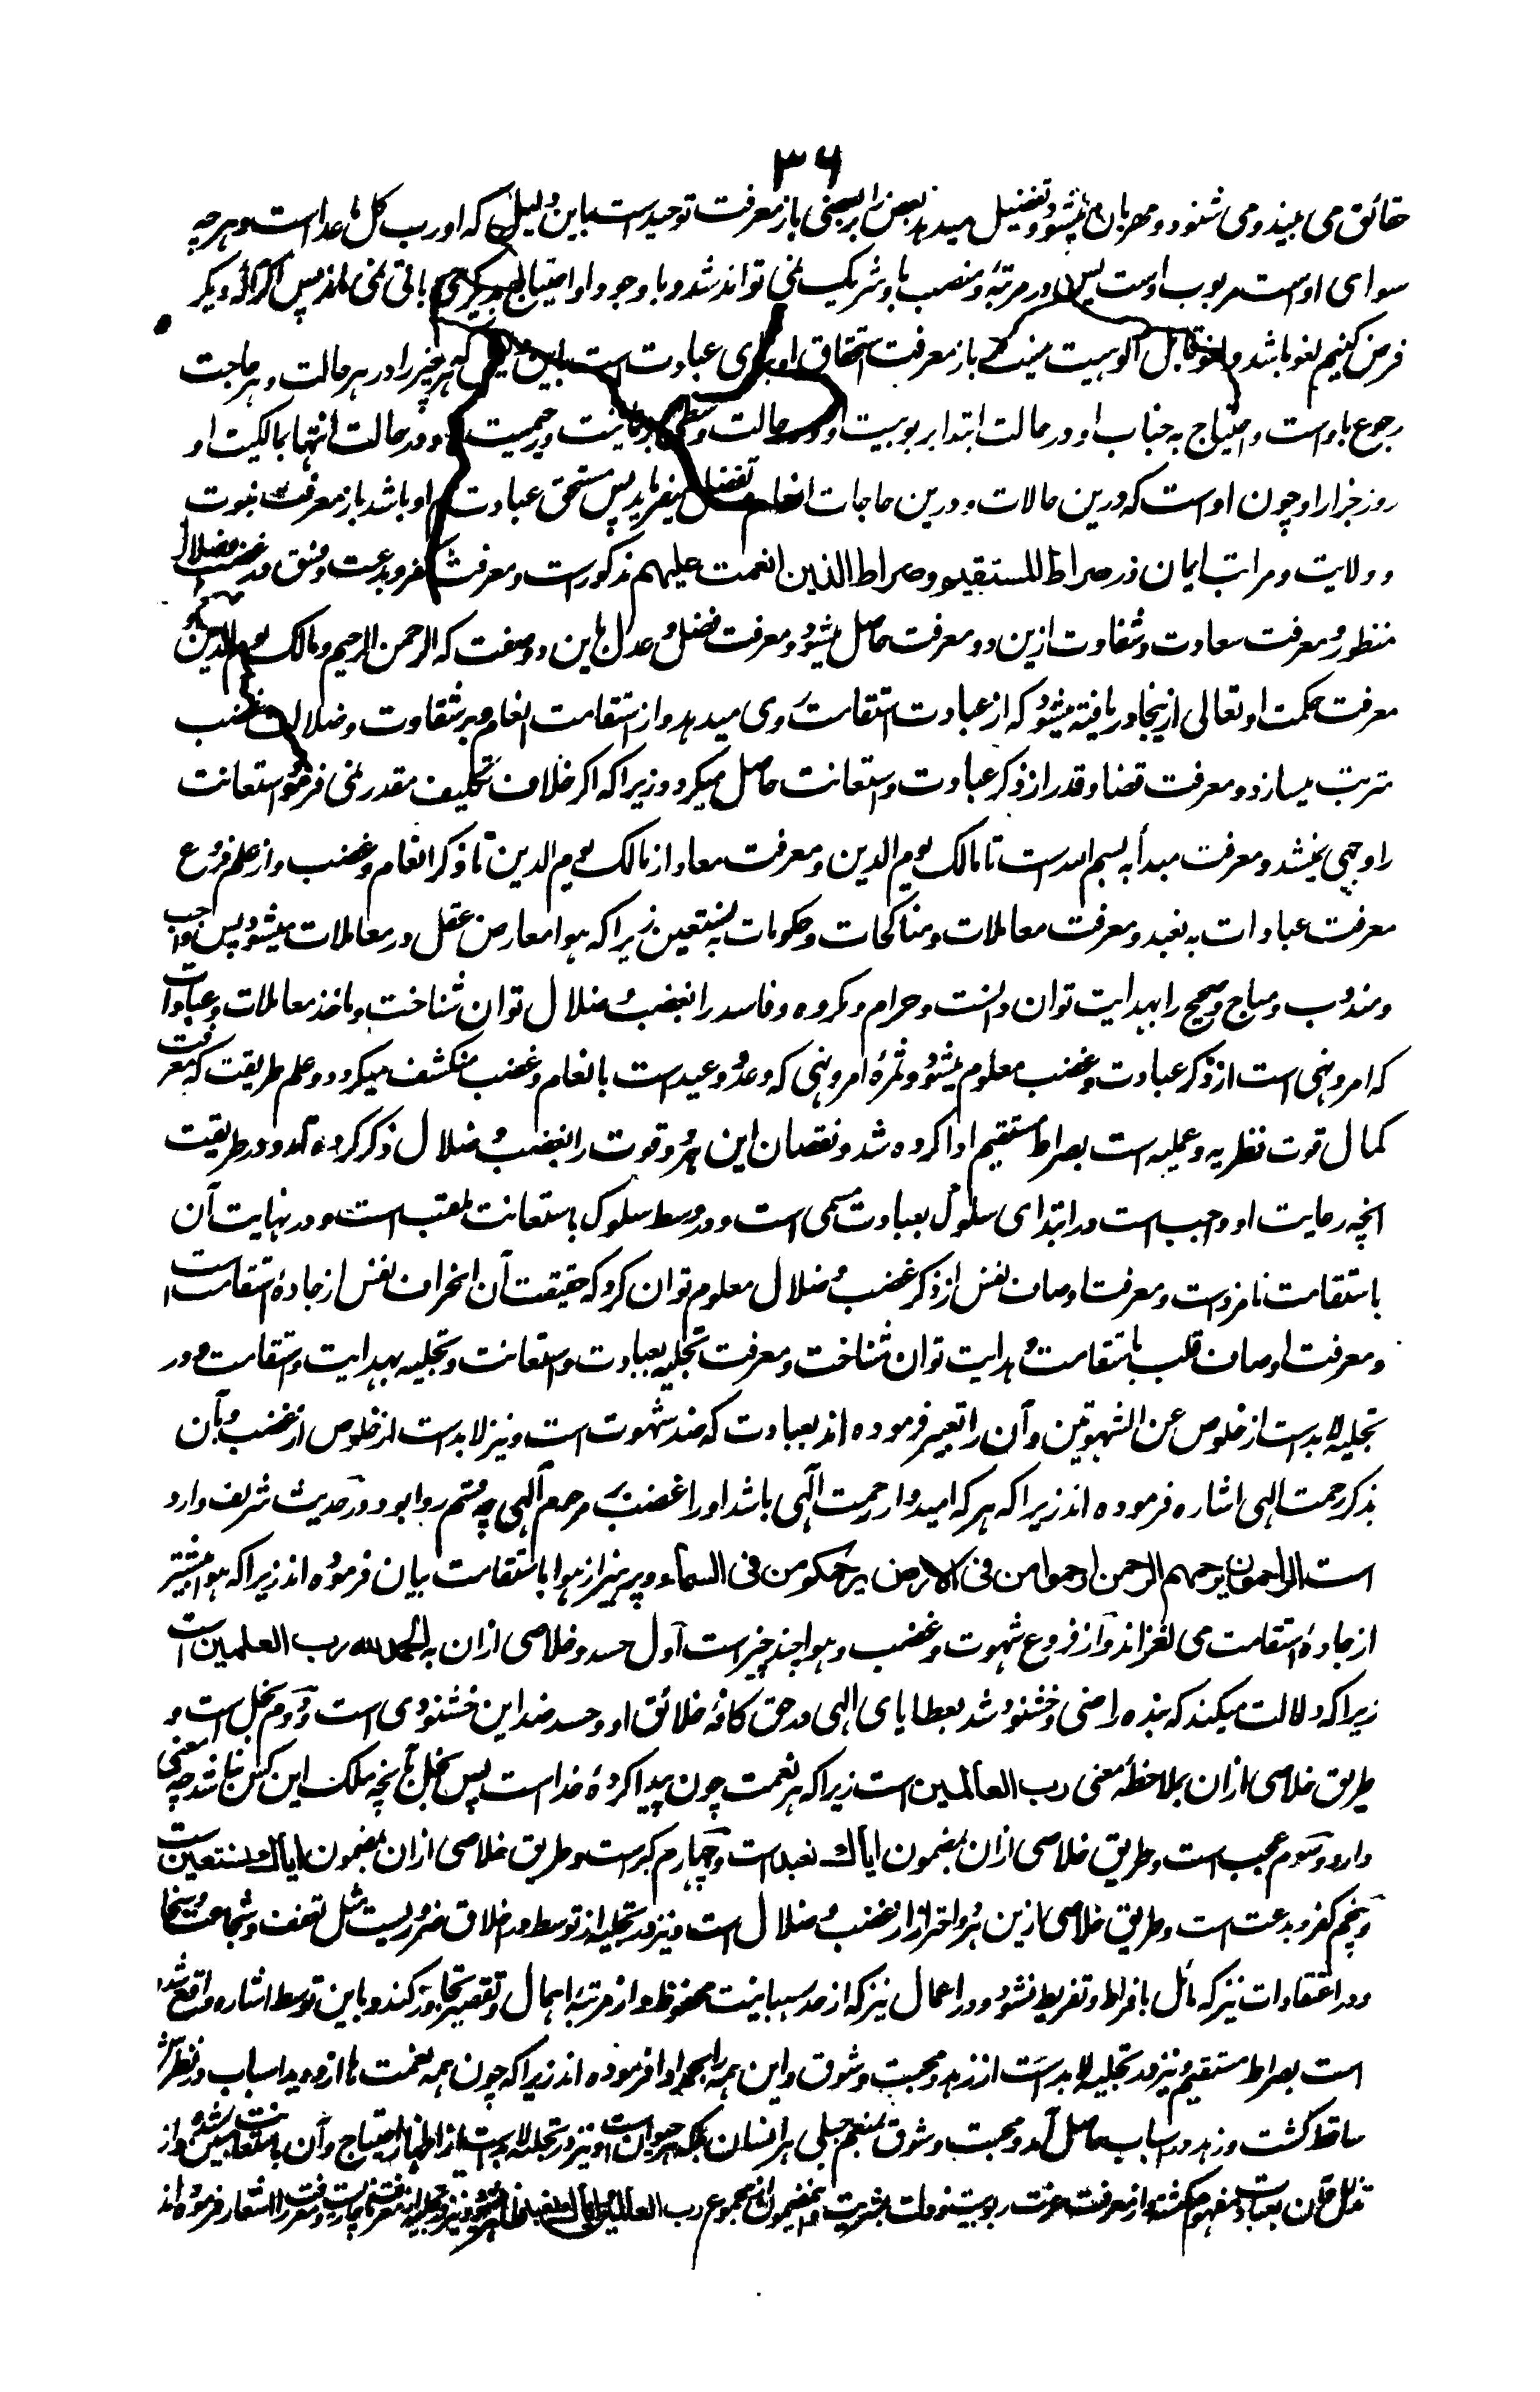 ۳۶
حقائق می بیند و می شنود و مهربان میشود و تفضیل میدهد بعض را بر بعضی باز معرفت توحید است باین دلیل که او رب کل ما عدا است و هر چه
سوای اوست مربوب اوست پس در مرتبه و منصب با و شریک نمی تواند شد و با وجود او احتیاج بدیگری باقی نمی ماند پس اگر اله دیگر
فرض کنیم لغو باشد و لغو قابل الوهیت نیست باز معرفت استحقاق او برای عبادت است باین دلیل که هر چیز را در هر حالت و هر حاجت
رجوع باوست و احتیاج به جناب او در حالت ابتدا بربوبیت او و در حالت وسطی برحمانیت و رحیمیت و در حالت انتها بمالکیت او
روز جزا را و چون اوست که درین حالات و درین حاجات انعام و تفضل میفرماید پس مستحق عبادت هم او باشد باز معرفت نبوت
و ولایت و مراتب ایمان در صراط المستقیم و صراط الذین انعمت علیهم مذکورست و معرفت کفر و بدعت و فسق در غضب و ضلال
منظور و معرفت سعادت و شقاوت ازین دو معرفت حاصل میشود و معرفت فضل و عدل باین دو صفت که الرحمن الرحیم و مالک یوم الدین و
معرفت حکمت او تعالی ازینجا دریافته میشود که از عبادت استقامت روی میدهد و از استقامت انعام و بر شقاوت و ضلال غضب
مترتب میسازد و معرفت قضا و قدر از ذکر عبادت و استعانت حاصل میگردد زیرا که اگر خلاف تکلیف مقدر نمی فرمود استعانت
را وجهی نمیشد و معرفت مبدأ به بسم الله ست تا مالک یوم الدین و معرفت معاد از مالک یوم الدین تا ذکر انعام و غضب و از علم فروع
معرفت عبادات به نعبد و معرفت معاملات و مناکحات و حکومات به نستعین زیرا که هوا معارض عقل در معاملات میشود پس واجب
و مندوب و مباح و صحیح را بهدایت توان دانست و حرام و مکروه و فاسد را بغضب و ضلال توان شناخت و ماخذ معاملات و عبادات
که امر و نهی است از ذکر عبادت و غضب معلوم میشود و ثمرۀ امر و نهی که وعد و وعید است بانعام و غضب منکشف میگردد و علم طریقت که معرفت
کمال قوت نظریه و عملیه است بصراط مستقیم ادا کرده شد و نقصان این هر دو قوت را بغضب و ضلال ذکر کرده آمد و در طریقت
انچه رعایت او واجب است در ابتدای سلوک بعبادت مسمی است و در وسط سلوک باستعانت ملقب است و در نهایت آن
باستقامت نامزدست و معرفت اوصاف نفس از ذکر غضب و ضلال معلوم توان کرد که حقیقت آن انحراف نفس از جادۀ استقامت است
و معرفت اوصاف قلب باستقامت و هدایت توان شناخت و معرفت تخلیه بعبادت و استعانت و تحلیه بهدایت و استقامت و در
تخلیه لابدست از خلوص عن الشهوتین و آن را تعبیر فرموده اند بعبادت که ضد شهوت است و نیز لابدست از خلوص از غضب و بآن
بذکر رحمت الهی اشاره فرموده اند زیرا که هر که امیدوار رحمت الهی باشد او را غضب بر مرحوم الهی چه قسم روا بود و در حدیث شریف وارد
است الراحمون یرحمهم الرحمن ارحموا من فی الارض یرحمکم من فی السماء و پرهیز از هوا باستقامت بیان فرموده اند زیرا که هوا بیشتر
از جادۀ استقامت می لغزاند و از فروع شهوت و غضب و هوا چند چیزست اول حسد و خلاصی ازان به الحمد لله رب العلمین است
زیرا که دلالت میکند که بنده راضی و خشنود شد بعطایای الهی در حق کافۀ خلائق او و حسد ضد این خشنودی است و دوم بخل است و
طریق خلاصی ازان بملاحظۀ معنی رب العالمین است زیرا که هر نعمت چون پیدا کردۀ خداست پس بخل بآنچه ملک این کس نباشد چه معنی
دارد و سوم عجب است و طریق خلاصی ازان بمضمون ایاک نعبدست و چهارم کبرست و طریق خلاصی ازان بمضمون ایاک نستعین است
و پنجم کفر و بدعت است و طریق خلاصی ازین هر دو احتراز از غضب و ضلال است و نیز در تحلیه از توسط در اخلاق ضروریست مثل تعفف و شجاعت و سخا
و در اعتقادات نیز که مائل بافراط و تفریط نشود و در اعمال نیز که از حد رهبانیت محفوظ و از مرتبۀ اهمال و تقصیر تجاوز کند و باین توسط اشاره واقع شده
است بصراط مستقیم و نیز در تحلیه لابدست از زهد و محبت و شوق و این همه را بحمد ادا فرموده اند زیرا که چون همه نعمت ها ازو دید اسباب در نظرش
ساقط گشت و زهد در اسباب حاصل آمد و محبت و شوق منعم جبلی هر انسان بلکه هر حیوان است و نیز در تحلیه لابدست از اظهار احتیاج و آن باستعانت مبین شده و از
تذلل و آن بعبادت مفهوم گشته و از معرفت عزت ربوبیت و ذلت بشریت و بمضمون مجموع رب العالمین و ایاک نعبد